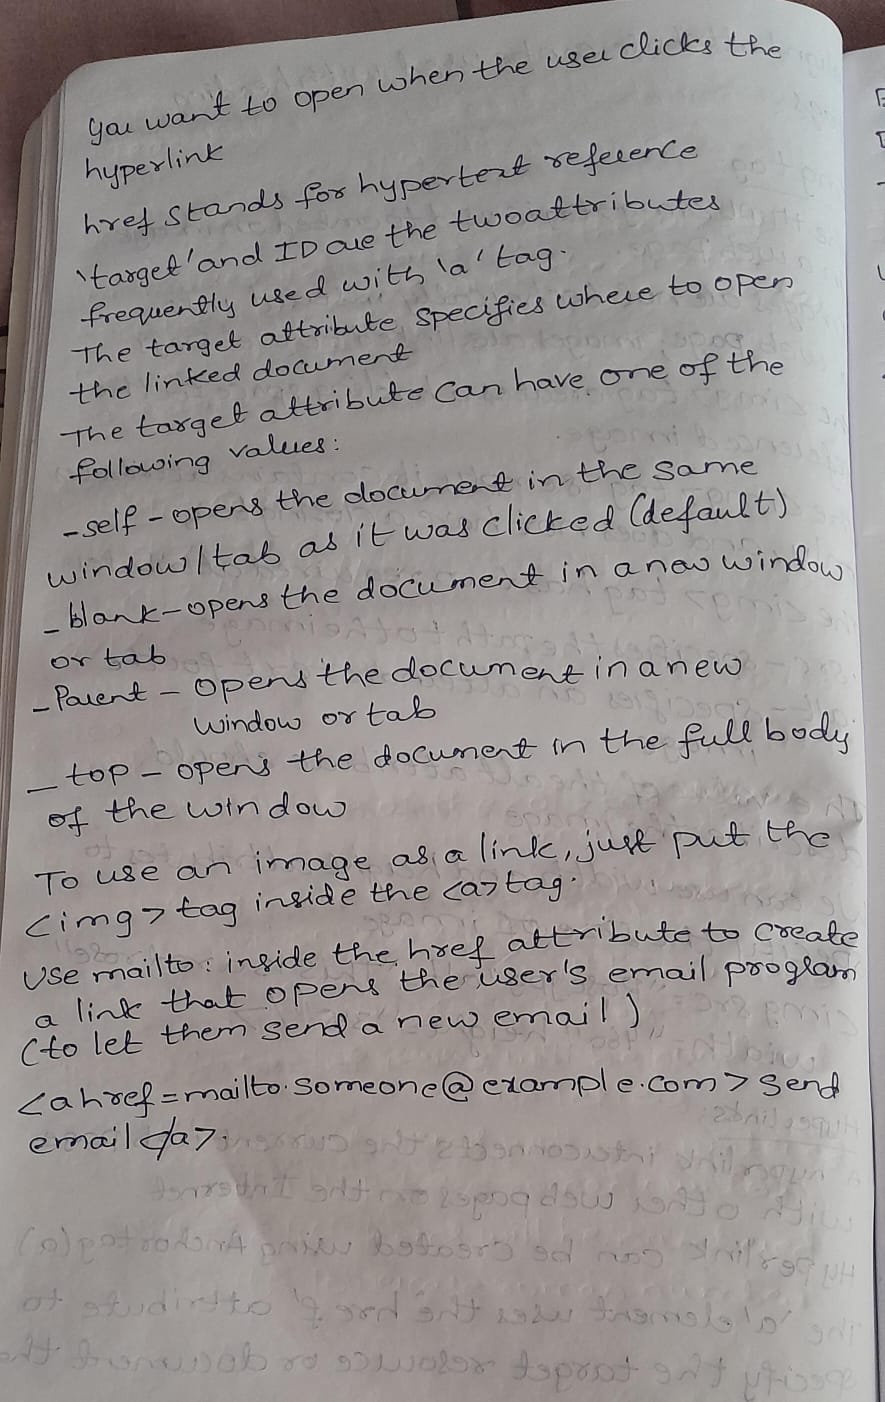 you want to open when the user clicks the
hyperlink
href stands for hypertext reference
'target' and ID are the two attributes
frequently used with 'a' tag.
The target attribute specifies where to open
the linked document
The target attribute can have one of the
following values:
-self - opens the document in the same
window/tab as it was clicked (default)
_blank - opens the document in a new window
or tab
_Parent - opens the document in a new
window or tab
_top - opens the document in the full body
of the window
To use an image as a link, just put the
<img> tag inside the <a> tag.
Use mailto: inside the href attribute to create
a link that opens the user's email program
(to let them send a new email)
<a href=mailto.someone@example.com> Send
email </a>.